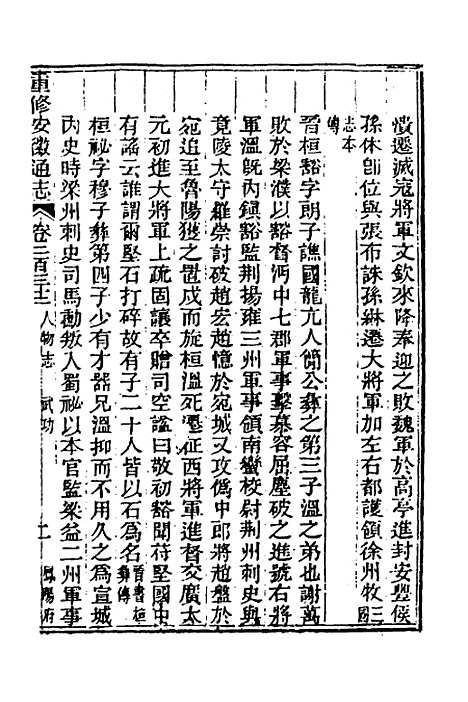 憤遷滅寇將軍文欽來降奉迎之敗魏軍於高亭進封安豐侯
孫休卽位與張布誅孫綝遷大將軍加左右都護領徐州牧三國
志本
傳
晉桓豁字朗子譙國龍亢人簡公彝之第三子溫之弟也謝萬
敗於梁濮以豁督沔中七郡軍事擊慕容屈塵破之進號右將
軍溫旣內鎭豁監荆揚雍三州軍事領南蠻校尉荆州刺史與
竟陵太守羅崇討破趙宏趙憶於宛城又攻僞中郎將趙盤於
宛追至魯陽獲之置戍而旋桓溫死遷征西將軍進督交廣太
元初進大將軍上疏固讓卒贈司空諡曰敬初豁聞苻堅國中
有謠云誰謂爾堅石打碎故有子二十人皆以石爲名晉書桓
彝傳
桓祕字穆子彝第四子少有才器兄溫抑而不用久之爲宣城
內史時梁州刺史司馬勳叛入蜀祕以本官監梁益二州軍事
重修安徽通志 卷二百三十三 人物志 武功 一 鳳陽府